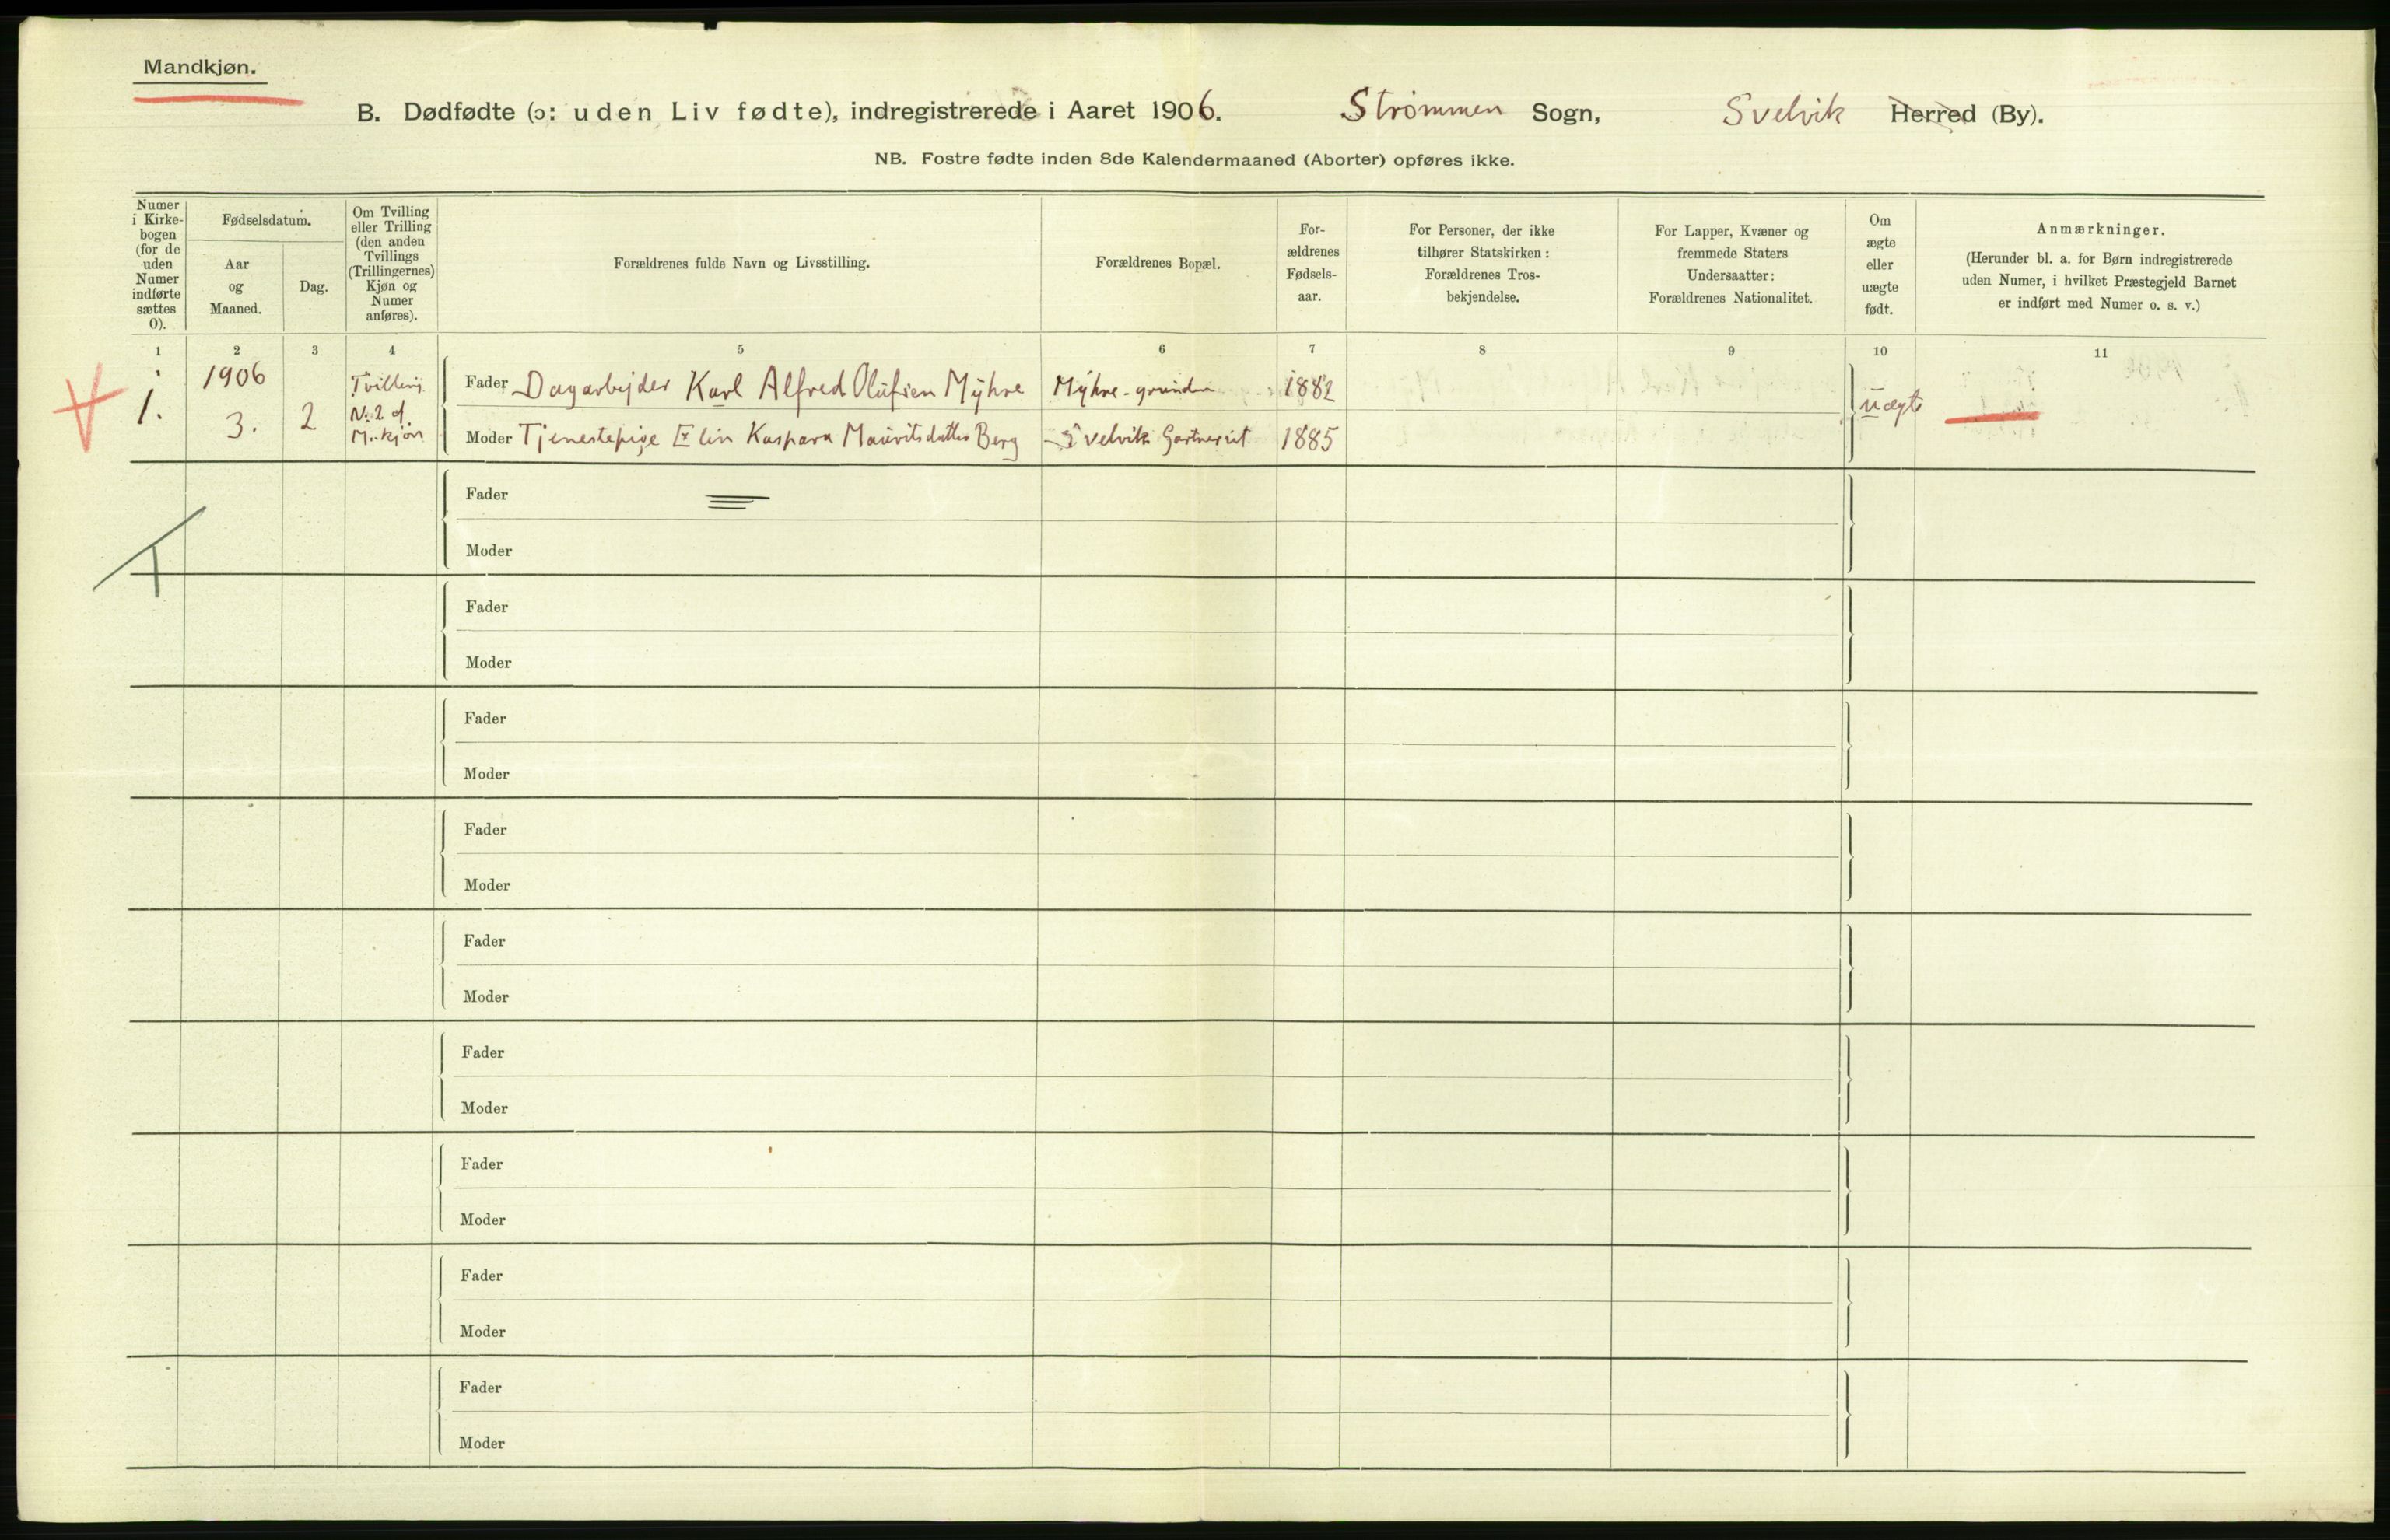 Mandkjøn.
B. Dødfødte (ɔ: uden Liv fødte), indregistrerede i Aaret 1906. Strömmen Sogn, Svelvik Herred (By).
NB. Fostre fødte inden 8de Kalendermaaned (Aborter) opføres ikke.
Numer
i Kirke-
bogen
(for de
uden
Numer
indførte
sættes
0).
Fødselsdatum.
Aar
og
Maaned.
Dag.
Om Tvilling
eller Trilling
(den anden
Tvillings
(Trillingernes)
Kjøn og
Numer
anføres).
Forældrenes fulde Navn og Livsstilling.
Forældrenes Bopæl.
For-
ældrenes
Fødsels-
aar.
For Personer, der ikke
tilhører Statskirken:
Forældrenes Tros-
bekjendelse.
For Lapper, Kvæner og
fremmede Staters
Undersaatter:
Forældrenes Nationalitet.
Om
ægte
eller
uægte
født.
Anmærkninger.
(Herunder bl. a. for Børn indregistrerede
uden Numer, i hvilket Præstegjeld Barnet
er indført med Numer o. s. v.)
1 2 3 4 5 6 7 8 9 10 11
1.
1906
3.
2
Tvilling
No. 2 af
M.kjøn
Fader Dagarbejder Karl Alfred Olufsen Myhre Myhre-grunden 1882
Moder Tjenestepige Elin Kaspara Mauritsdatter Berg Svelvik Gartneriet 1885
uægte
Fader
Moder
Fader
Moder
Fader
Moder
Fader
Moder
Fader
Moder
Fader
Moder
Fader
Moder
Fader
Moder
Fader
Moder